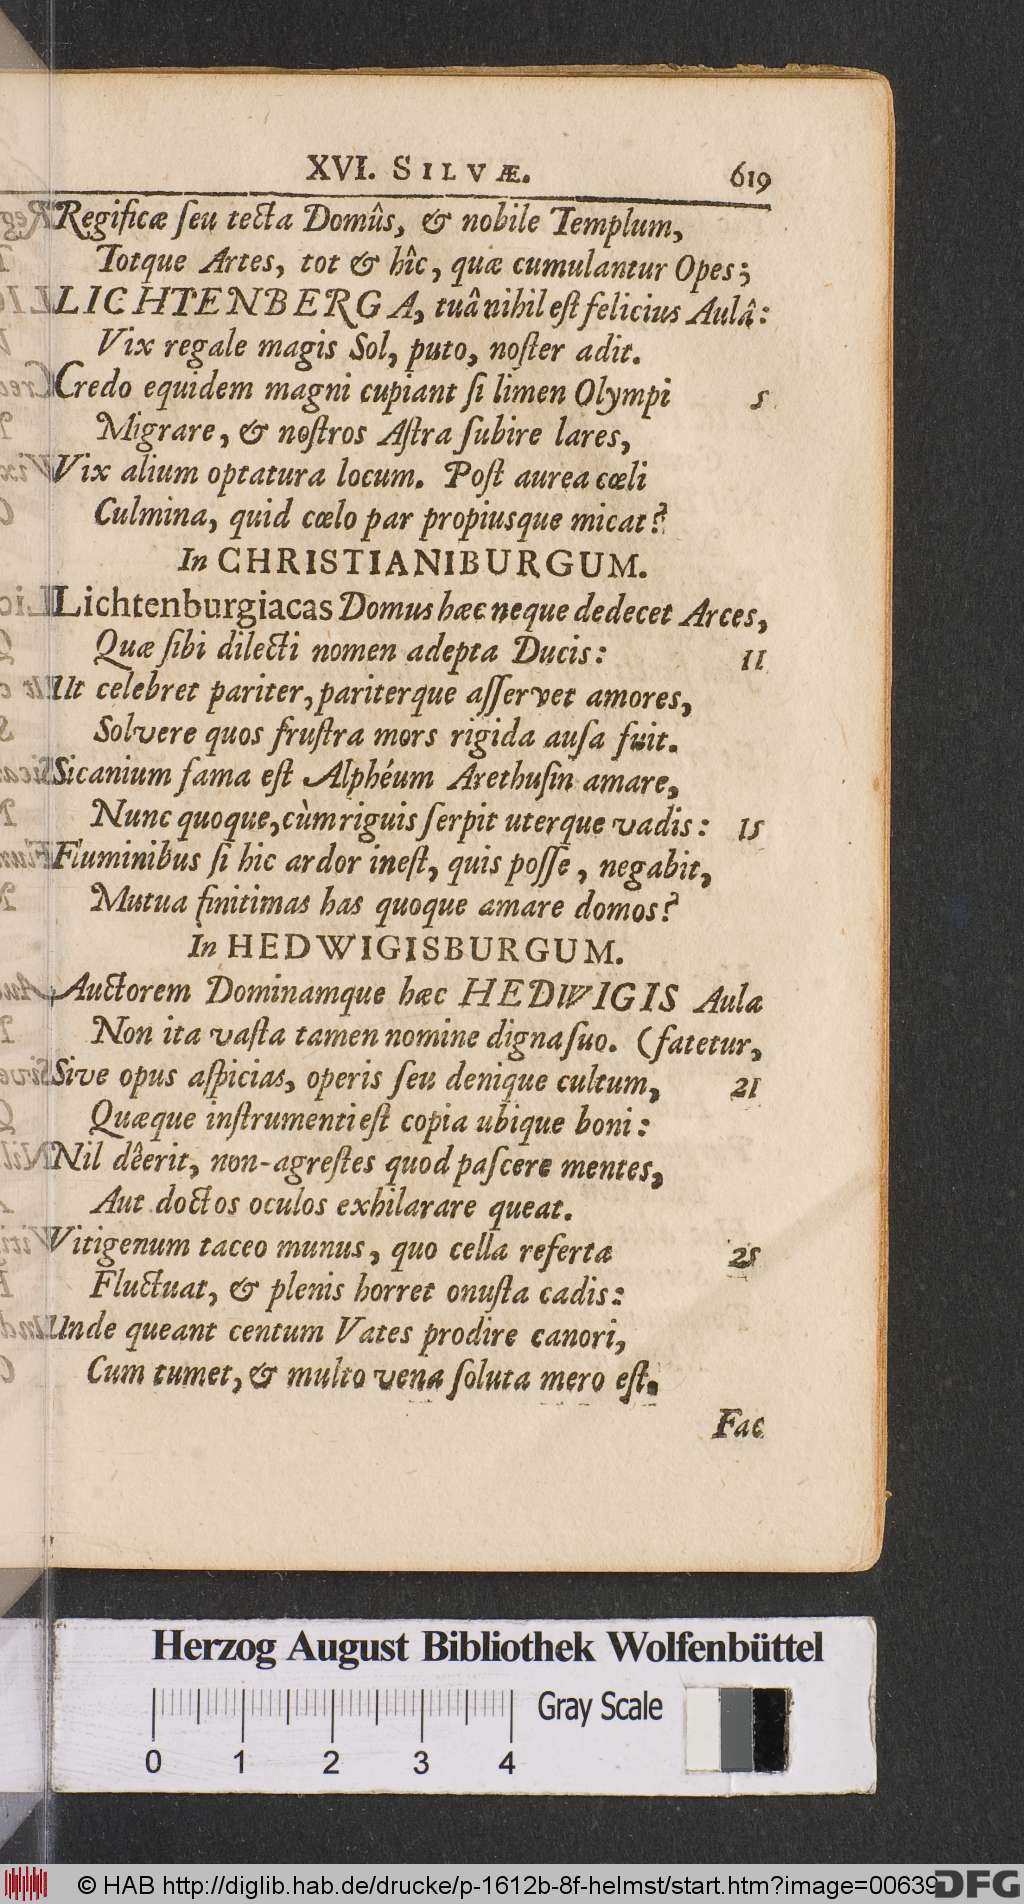 XVI. SILVÆ. 619
Regificæ ſeu tecta Domûs, & nobile Templum,
Totque Artes, tot & hîc, quæ cumulantur Opes;
LICHTENBERGA, tuâ nihil eſt felicius Aulâ:
Vix regale magis Sol, puto, noſter adit.
Credo equidem magni cupiant ſi limen Olympi 5
Migrare, & noſtros Aſtra ſubire lares,
Vix alium optatura locum. Poſt aurea cœli
Culmina, quid cœlo par propiusque micat?
In CHRISTIANIBURGUM.
Lichtenburgiacas Domus hæc neque dedecet Arces,
Quæ ſibi dilecti nomen adepta Ducis: 11
Ut celebret pariter, pariterque aſſervet amores,
Solvere quos fruſtra mors rigida auſa fuit.
Sicanium fama eſt Alphéum Arethuſin amare,
Nunc quoque, cùm riguis ſerpit uterque vadis: 15
Fluminibus ſi hic ardor ineſt, quis poſſe, negabit,
Mutua finitimas has quoque amare domos?
In HEDWIGISBURGUM.
Auctorem Dominamque hæc HEDWIGIS Aula
Non ita vaſta tamen nomine digna ſuo. (fatetur,
Sive opus aſpicias, operis ſeu denique cultum, 21
Quæque inſtrumenti eſt copia ubique boni:
Nil dêerit, non-agreſtes quod paſcere mentes,
Aut doctos oculos exhilarare queat.
Vitigenum taceo munus, quo cella referta 25
Fluctuat, & plenis horret onuſta cadis:
Unde queant centum Vates prodire canori,
Cum tumet, & multo vena ſoluta mero eſt.
Fac
Herzog August Bibliothek Wolfenbüttel
Gray Scale
0 1 2 3 4
© HAB http://diglib.hab.de/drucke/p-1612b-8f-helmst/start.htm?image=00639
DFG